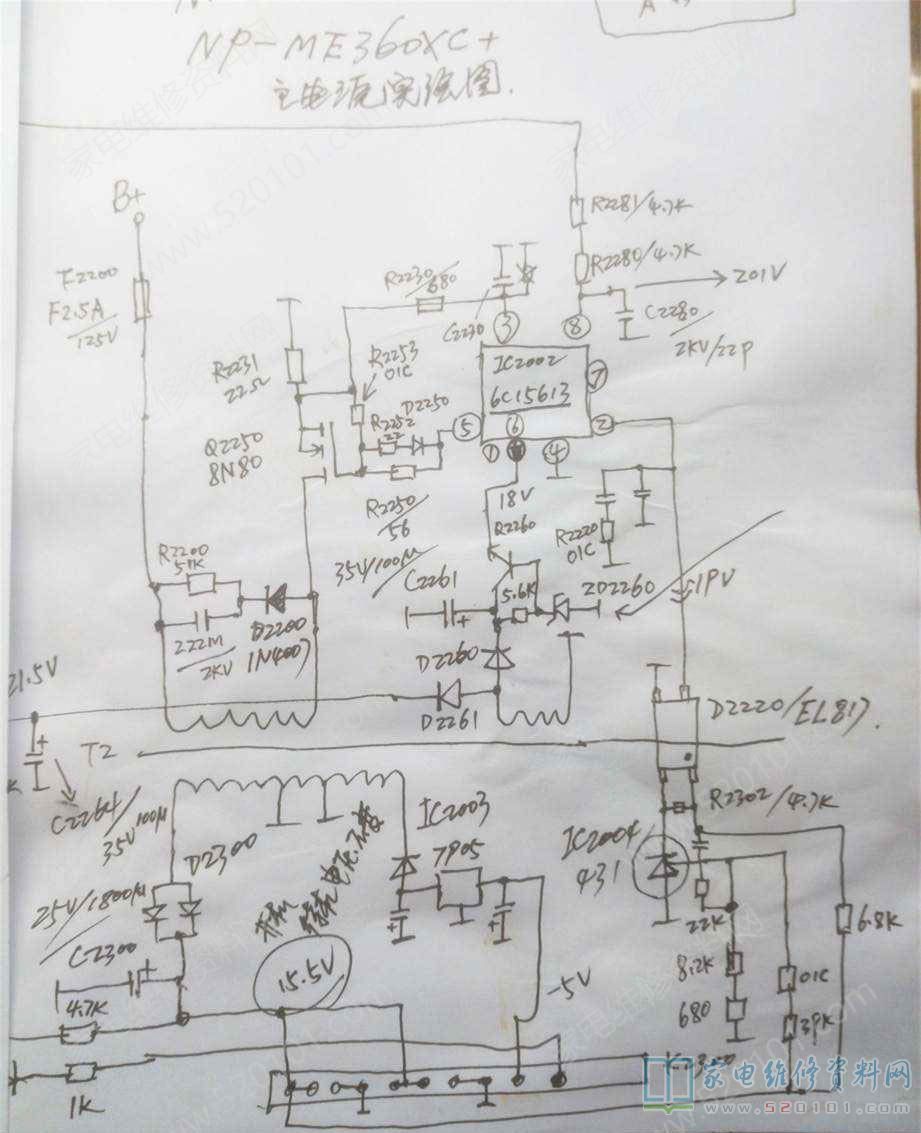 A
NP-ME360XC+
主电源实绘图.
B+
F2200
F2.5A
/125V
R2281/4.7K
R2280/4.7K
201V
C2280
/2KV/22P
R2230
/680
C2230
③
⑧
R2231
22Ω
R2253
01C
D2250
R2252
22
IC2002
6C15613
⑦
⑤
⑥
②
①
④
Q2250
8N80
R2250
/56
18V
Q2260
R2220
01C
35V/100μ
C2261
5.6K
ZD2260
1PV
R2200
51K
222M
/2KV
D2200
1N4007
D2260
D2261
21.5V
K
C2264/
35V100μ
T2
D2220/EL817.
R2302/4.7K
D2300
IC2003
7P05
IC2004
431
25V/1800μ
C2300
开机
待机电压不变
15.5V
22K
6.8K
8.2K
680
01C
39K
-5V
4.7K
1K
K2300
家电维修资料网
www.520101.com